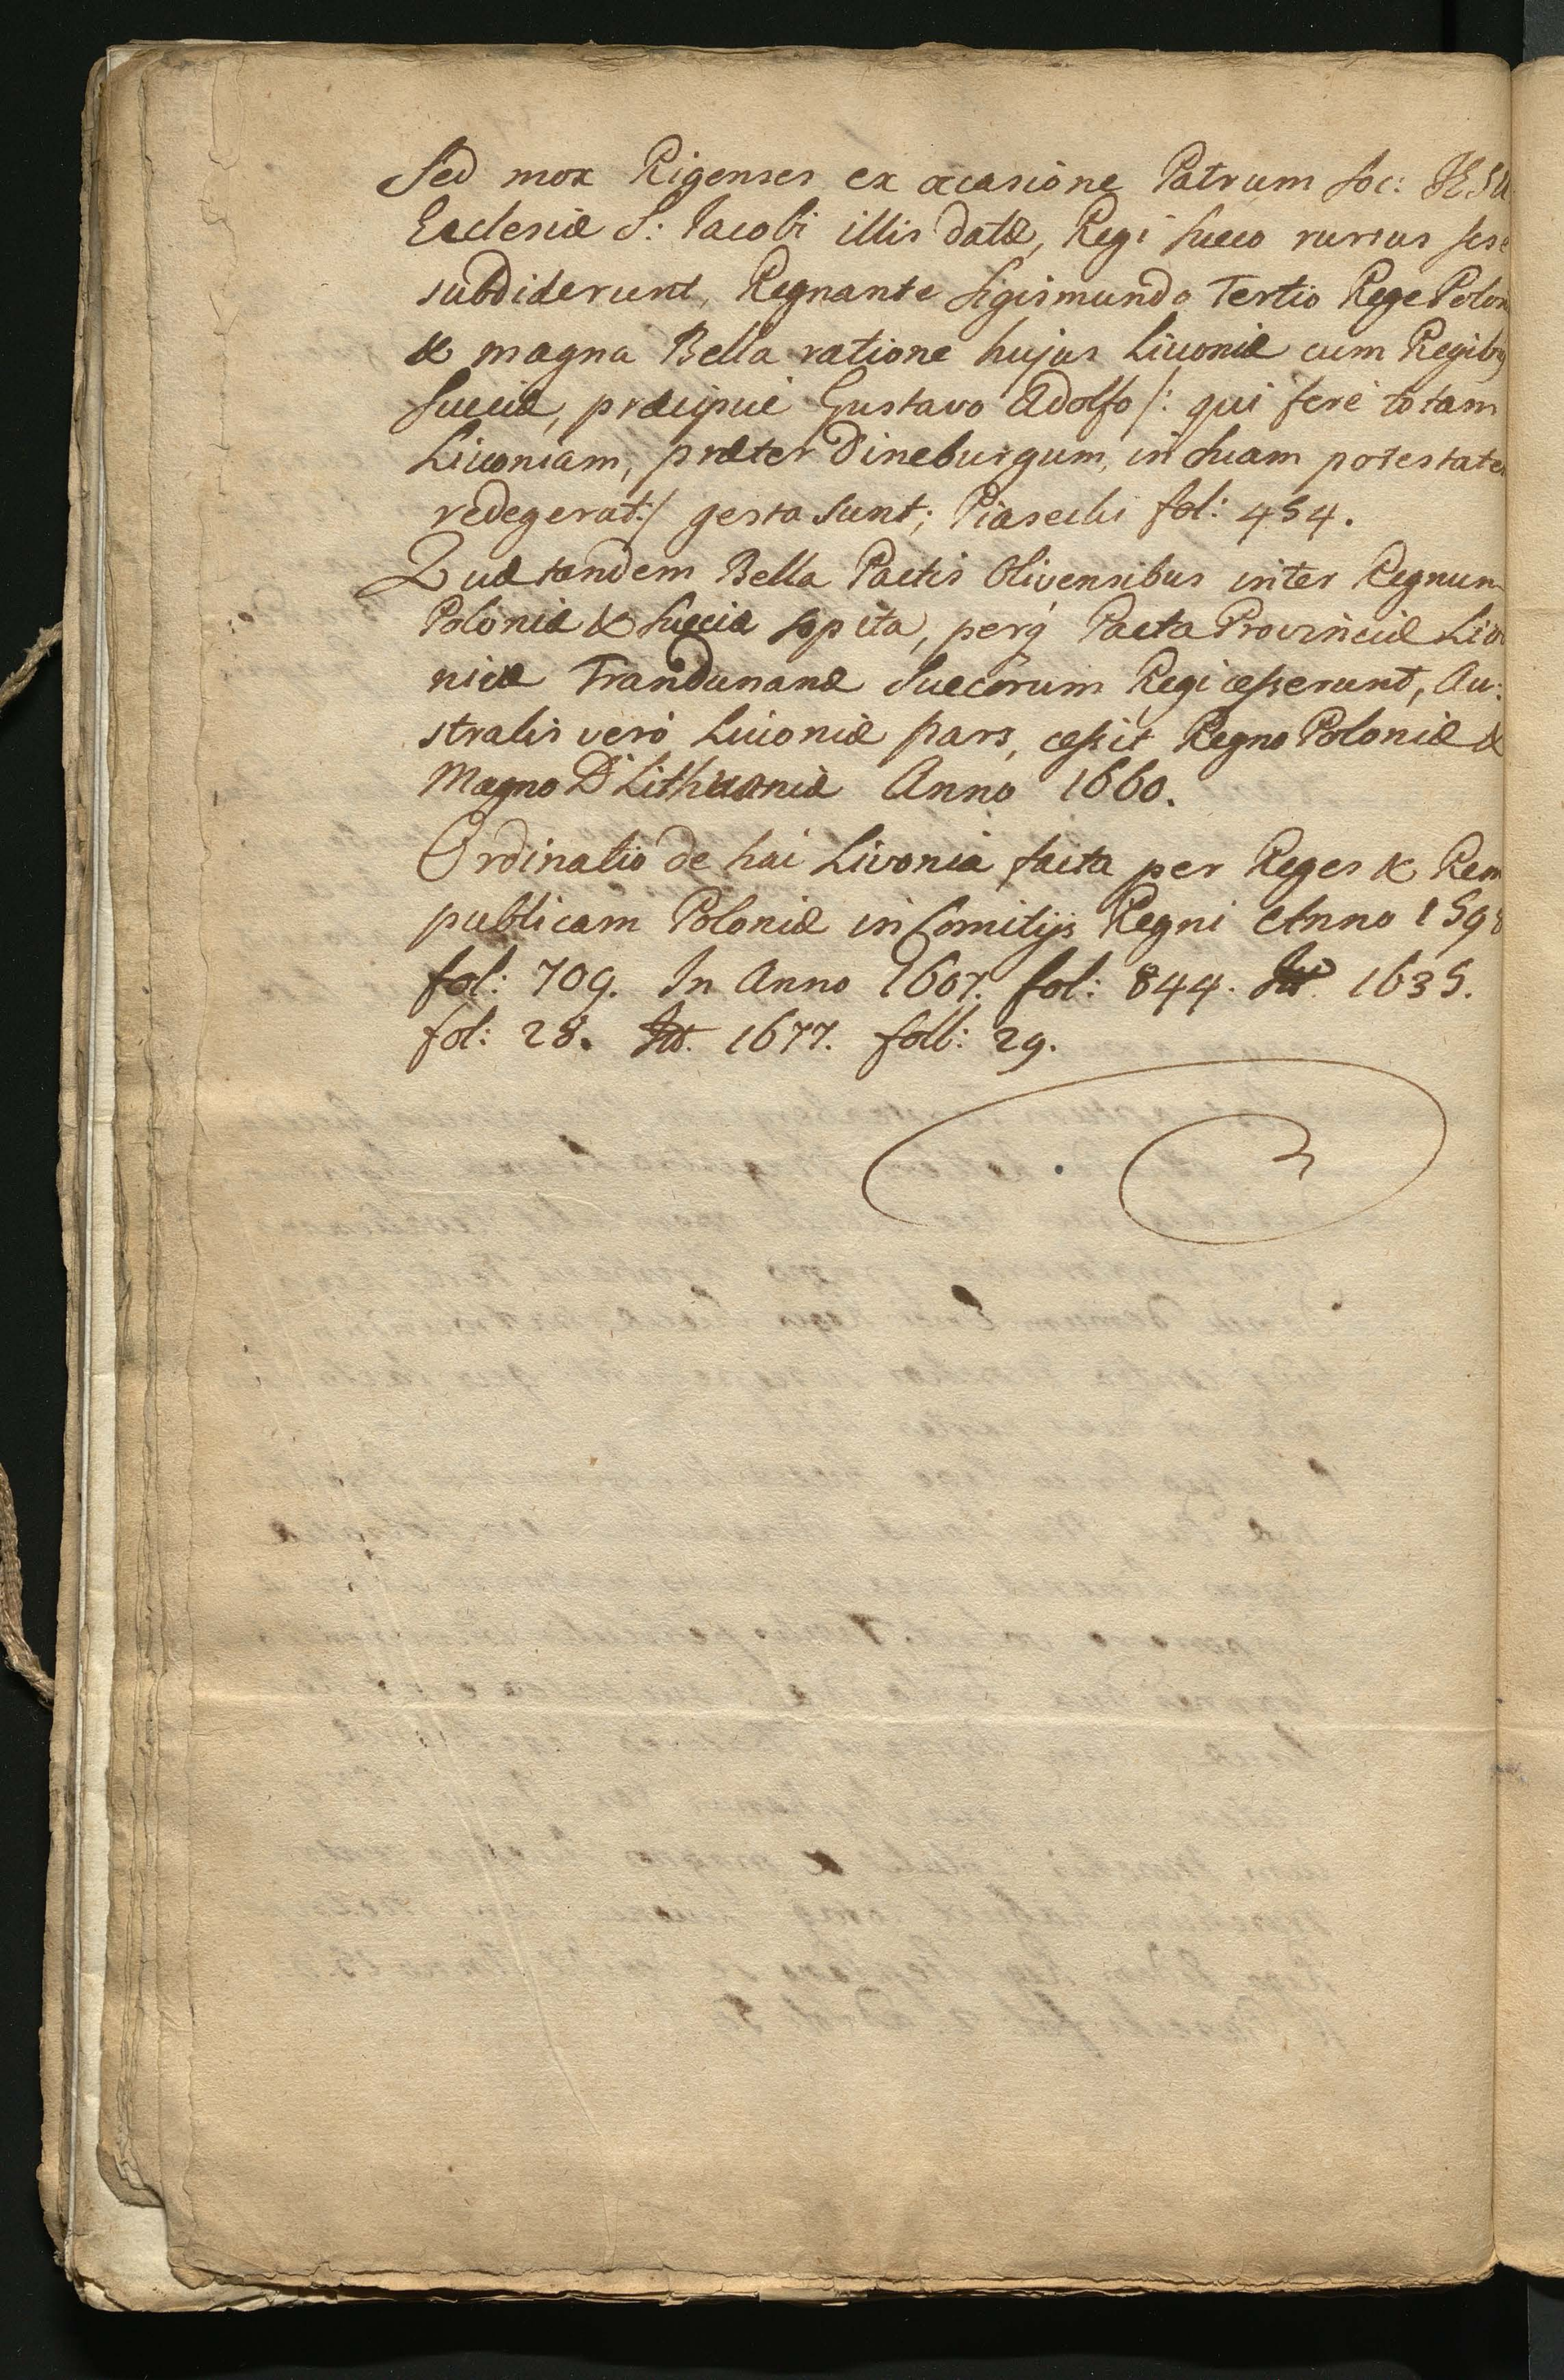 Sed mox Rigenses ex occasione Patrum Soc: JESU
Ecclesiæ S: Jacobi illis datæ, Regi Sueco rursus sese
subdiderunt, Regnante Sigismundo Tertio Rege Polon
& magna Bella ratione hujus Livoniæ cum Regibq
Sueciæ, præcipuè Gustavo Adolfo /: qui ferè totam
Livoniam, præter Dineburgum, in suam potestatem
redegerat :/ gesta sunt; Piasecki fol: 454.
Quæ tandem Bella Pactis Olivensibus inter Regnum
Poloniæ & Sueciæ sopita, perq Pacta Provinciæ Livo
niæ Trandunanæ Suecorum Regi cesserunt, Au:
stralis verò Livoniæ pars, cessit Regno Poloniæ &
Magno D Lithuaniæ Anno 1660.
Ordinatio de hac Livonia facta per Reges & Rem
publicam Poloniæ in Comitijs Regni Anno 1598
fol: 709. In Anno 1607. fol: 844. It. 1635.
fol: 28. It. 1677. foll: 29.